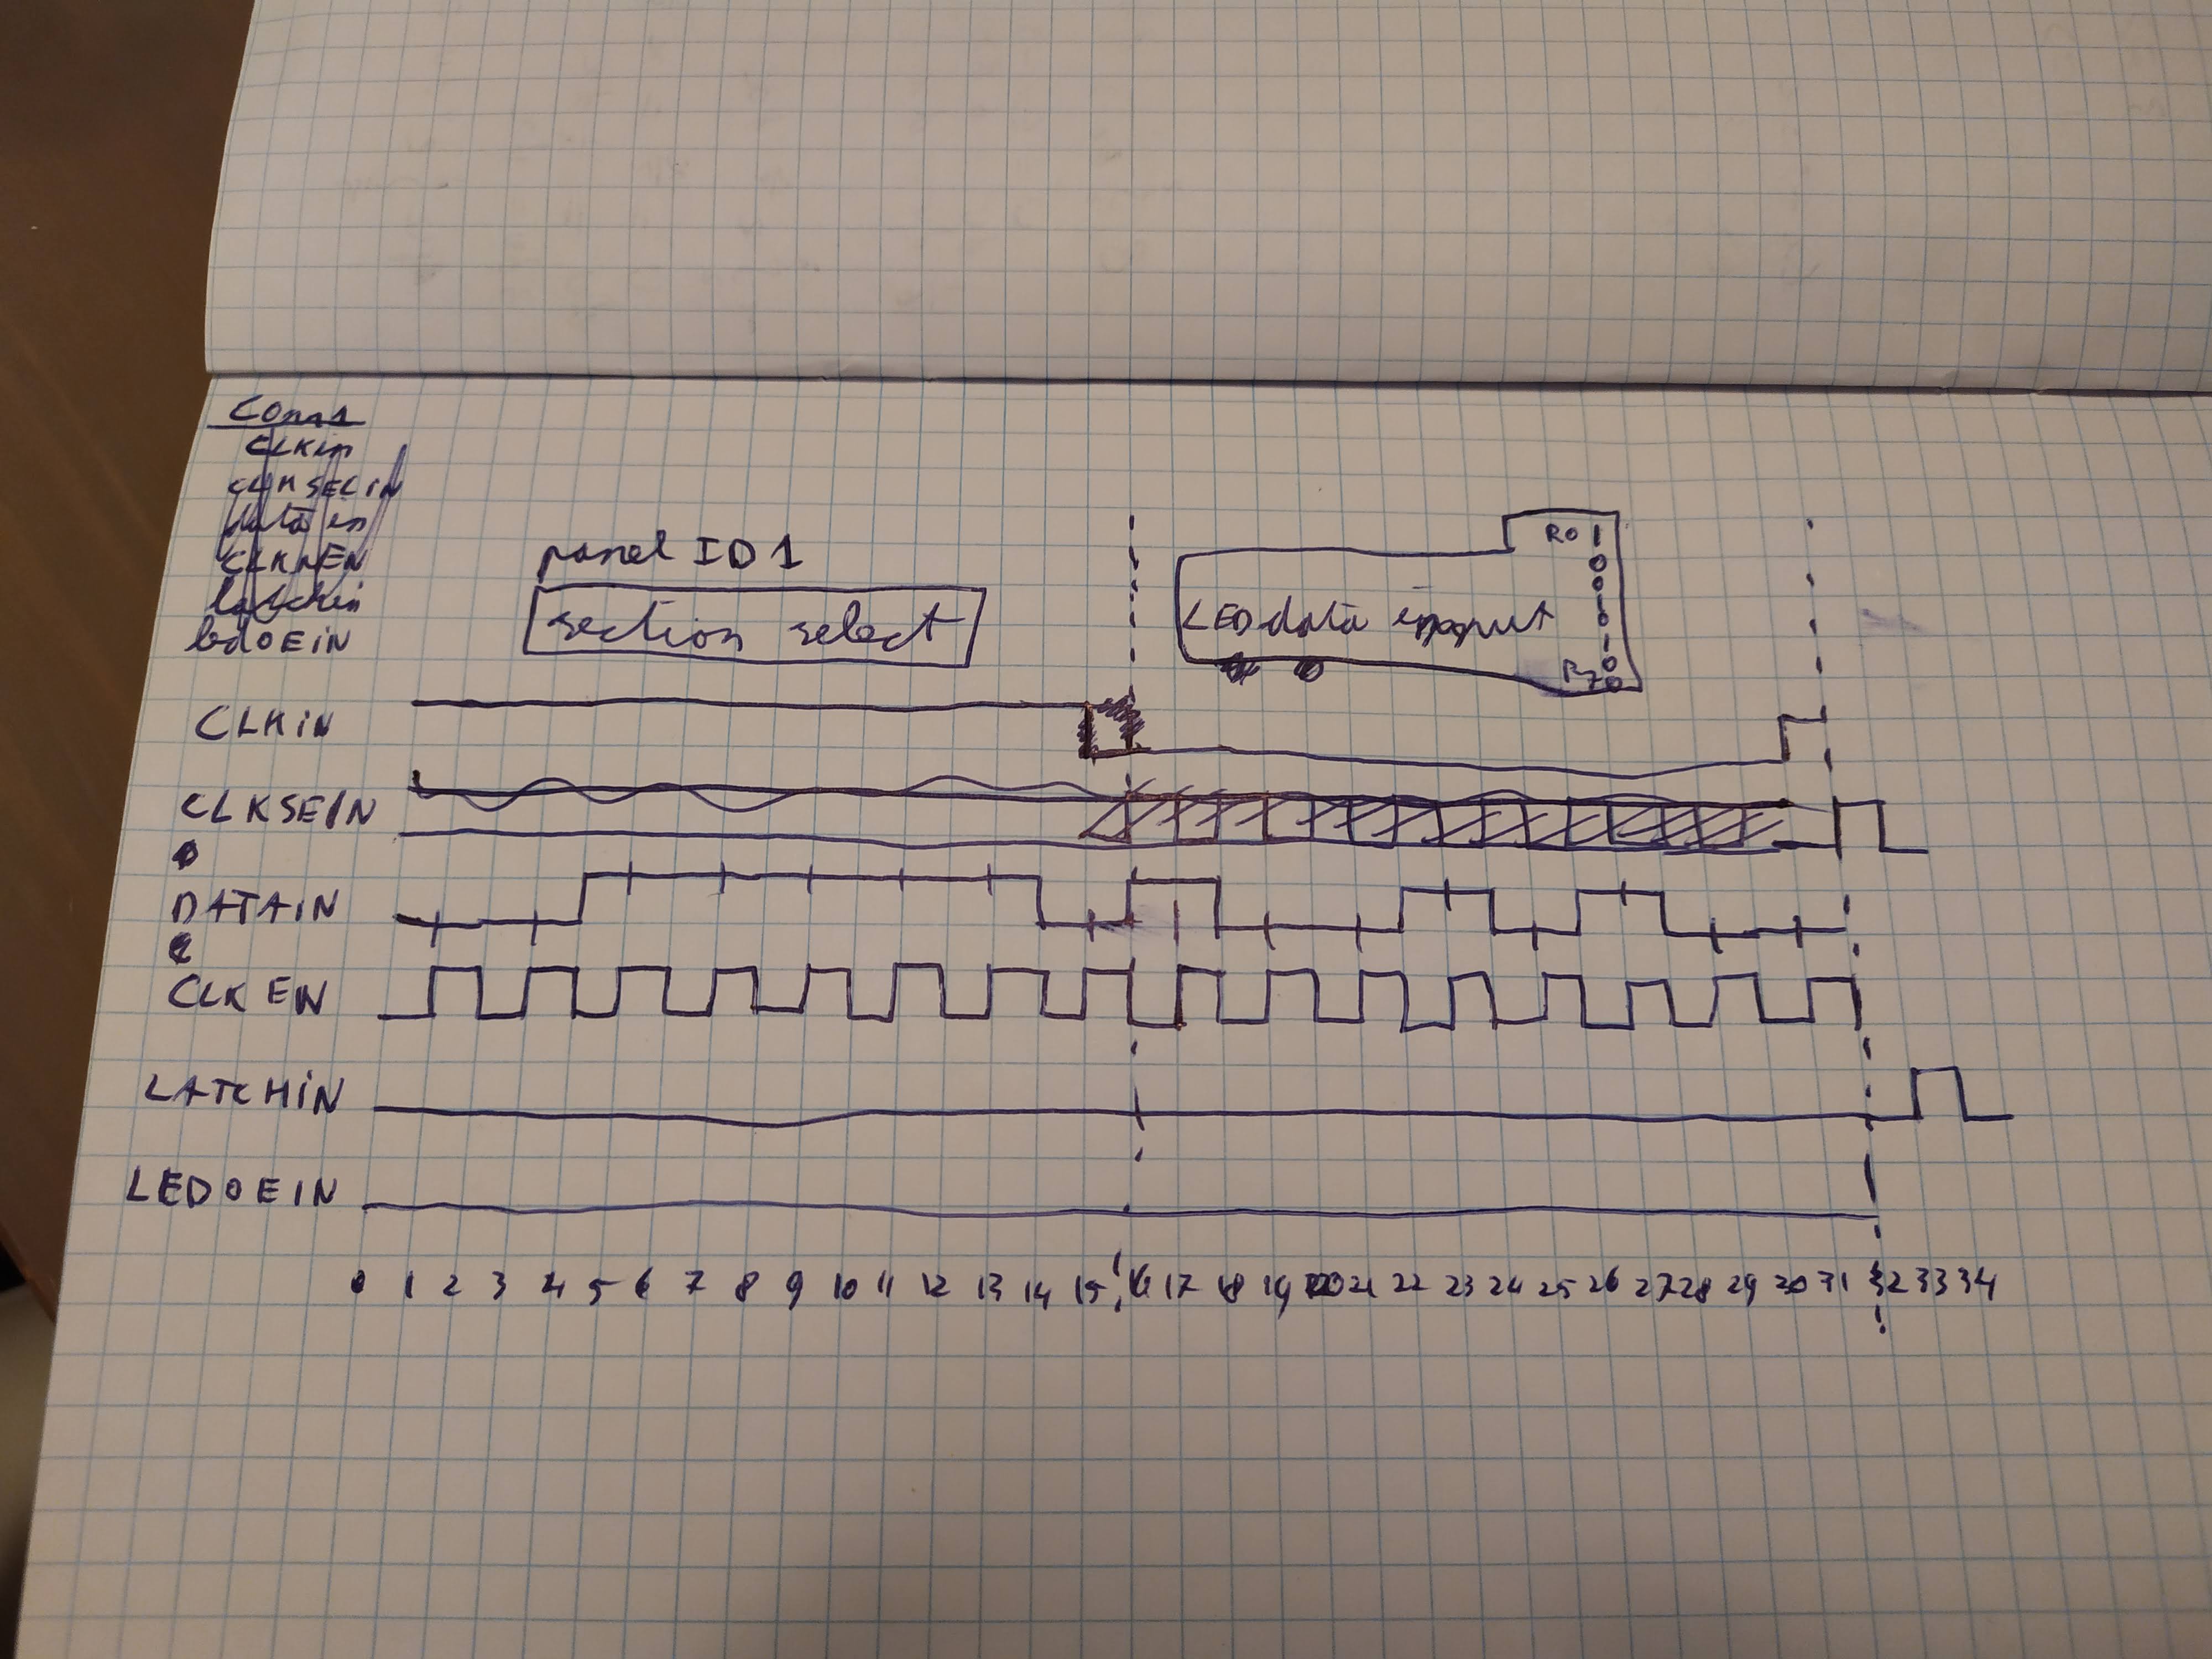 Conn1
CLKin
CLKSECIN
data in
CLKNEN
latchin
ledOEIN
panel ID1
section select
LED data input
R0 1
0
0
1
0
1
0
R7 0
CLKIN
CLKSEIN
DATAIN
CLKEIN
LATCHIN
LEDOEIN
0 1 2 3 4 5 6 7 8 9 10 11 12 13 14 15 16 17 18 19 20 21 22 23 24 25 26 27 28 29 30 31 32 33 34